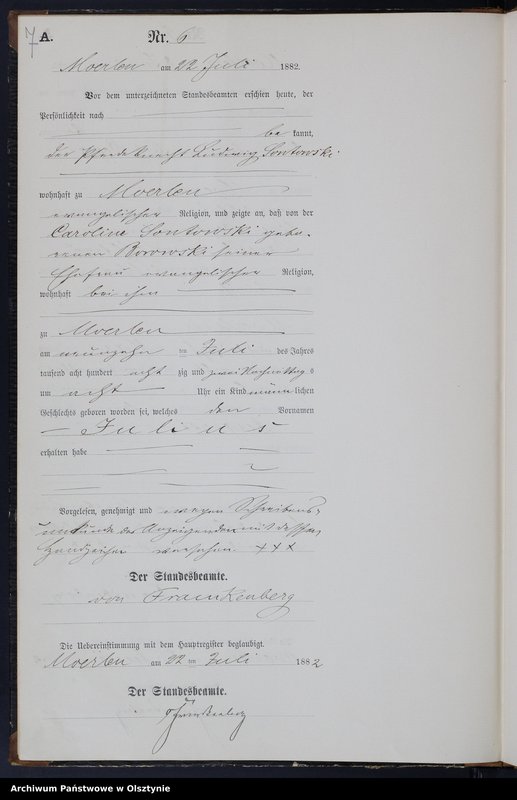 7 A. Nr. 6
Moerlen am 22 Juli 1882.
Vor dem unterzeichneten Standesbeamten erschien heute, der
Persönlichkeit nach
be kannt,
der Pferdeknecht Ludwig Sontowski
wohnhaft zu Moerlen
evangelischer Religion, und zeigte an, daß von der
Caroline Sontowski gebo-
renen Borowski seiner
Ehefrau evangelischer Religion,
wohnhaft bei ihm
zu Moerlen
am neunzehn ten Juli des Jahres
tausend acht hundert acht zig und zwei Nachmittags
um acht Uhr ein Kind männ lichen
Geschlechts geboren worden sei, welches den Vornamen
Julius
erhalten habe
Vorgelesen, genehmigt und wegen Schreibens-
unkunde des Anzeigenden mit dessen
Handzeichen versehen. + + +
Der Standesbeamte.
von Frankenberg
Die Uebereinstimmung mit dem Hauptregister beglaubigt.
Moerlen am 22 ten Juli 1882
Der Standesbeamte.
v Frankenberg
Archiwum Państwowe w Olsztynie